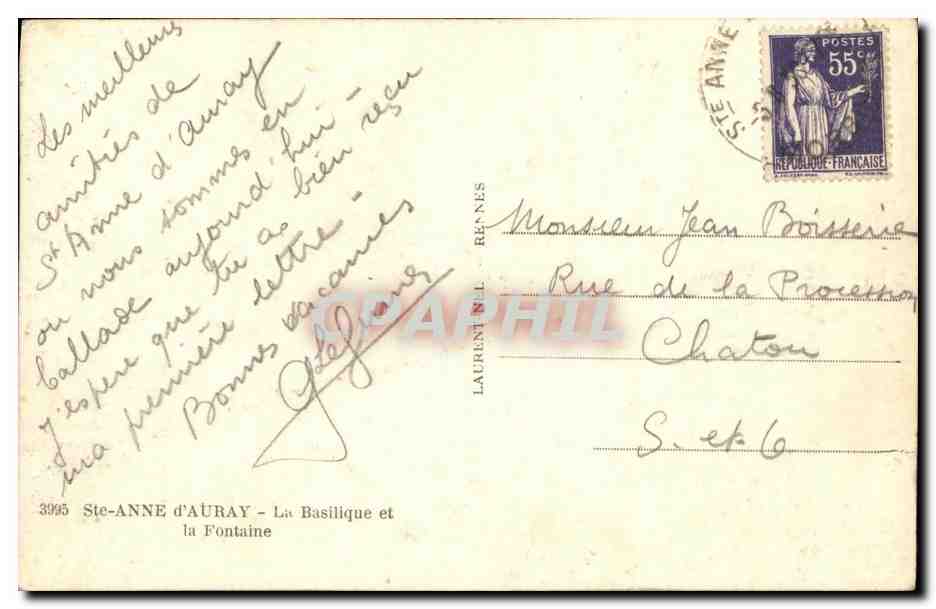 Les meilleurs
amitiés de
St Anne d'Auray
ou nous sommes en
ballade aujourd'hui -
J'espere que tu as bien reçu
ma première lettre -
Bonnes vacances
STE ANNE
POSTES
55c
REPUBLIQUE-FRANÇAISE
LAURENT NEL RENNES
Monsieur Jean Boisserie
Rue de la Procession
Chatou
S. et O
CPAPHIL
3995 Ste-ANNE d'AURAY - La Basilique et
la Fontaine